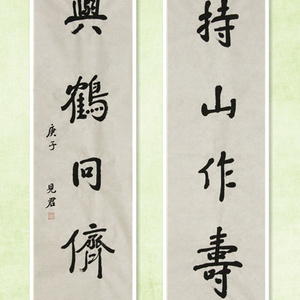 持山作壽
與鶴同儕
庚子 見君